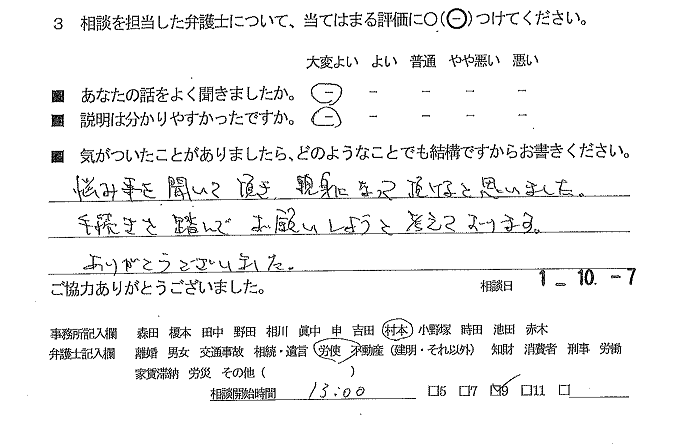 3 相談を担当した弁護士について、当てはまる評価に○(㊀)つけてください。
大変よい よい 普通 やや悪い 悪い
■ あなたの話をよく聞きましたか。 － － － － －
■ 説明は分かりやすかったですか。 － － － － －
■ 気がついたことがありましたら、どのようなことでも結構ですからお書きください。
悩み事を聞いて頂き、親身になって頂けると思いました。
手続きを踏んでお願いしようと考えております。
ありがとうございました。
ご協力ありがとうございました。
相談日 1 - 10. - 7
事務所記入欄 森田 榎本 田中 野田 相川 眞中 申 吉田 村本 小野塚 時田 池田 赤木
弁護士記入欄 離婚 男女 交通事故 相続・遺言 労使 不動産（建明・それ以外） 知財 消費者 刑事 労働
家賃滞納 労災 その他（ ）
相談開始時間 13:00 □5 □7 ☑9 □11 □